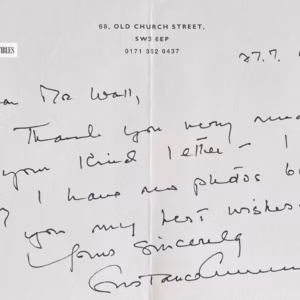 68, OLD CHURCH STREET,
SW3 6EP
0171 352 0437
TIBLES
27.7.
Mr Wall,
Thank you very muc
your kind letter - I
I have no photos b
you my best wishes
Yours sincerely
Constance